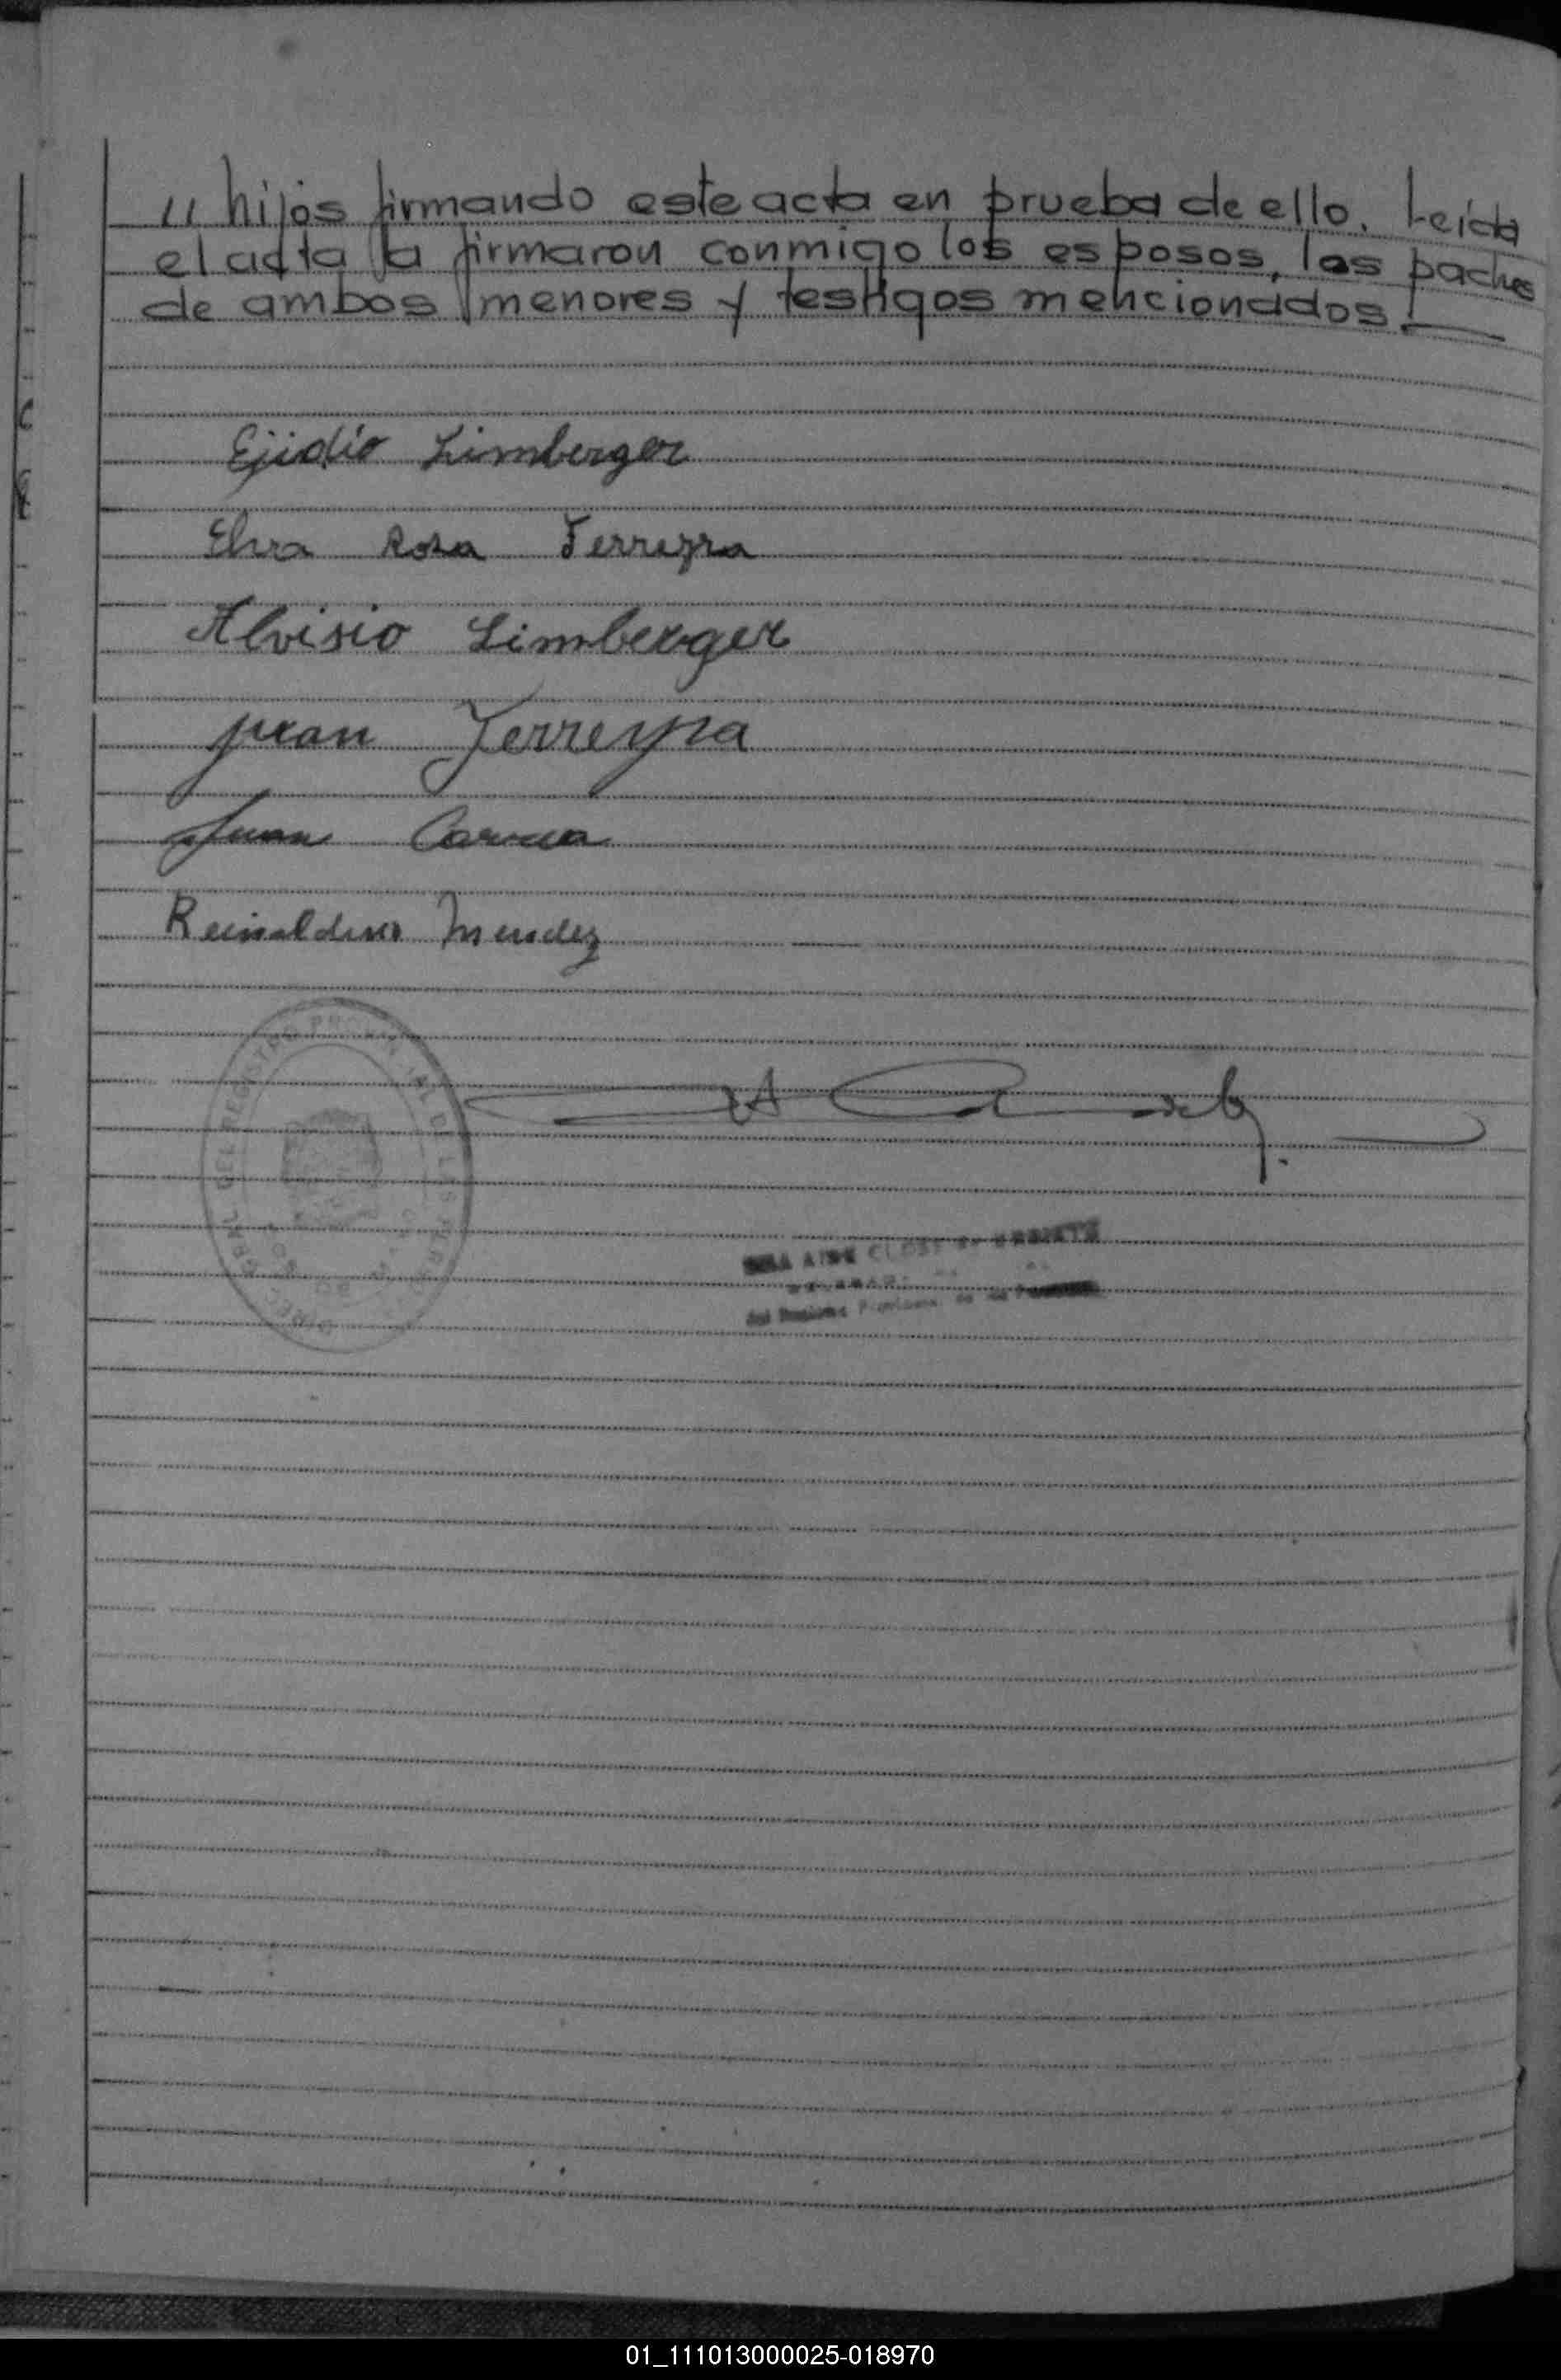 11 hijos firmando este acta en prueba de ello. Leída
el acta la firmaron conmigo los esposos, los padres
de ambos menores y testigos mencionados.
Ejidio Limberger
Elva Rosa Ferreyra
Alvisio Limberger
Juan Ferreyra
Juan
Reinaldino Mendez
DEL REGISTRO
CLOSS DE
del Registro Provincial de las Personas
01_111013000025-018970